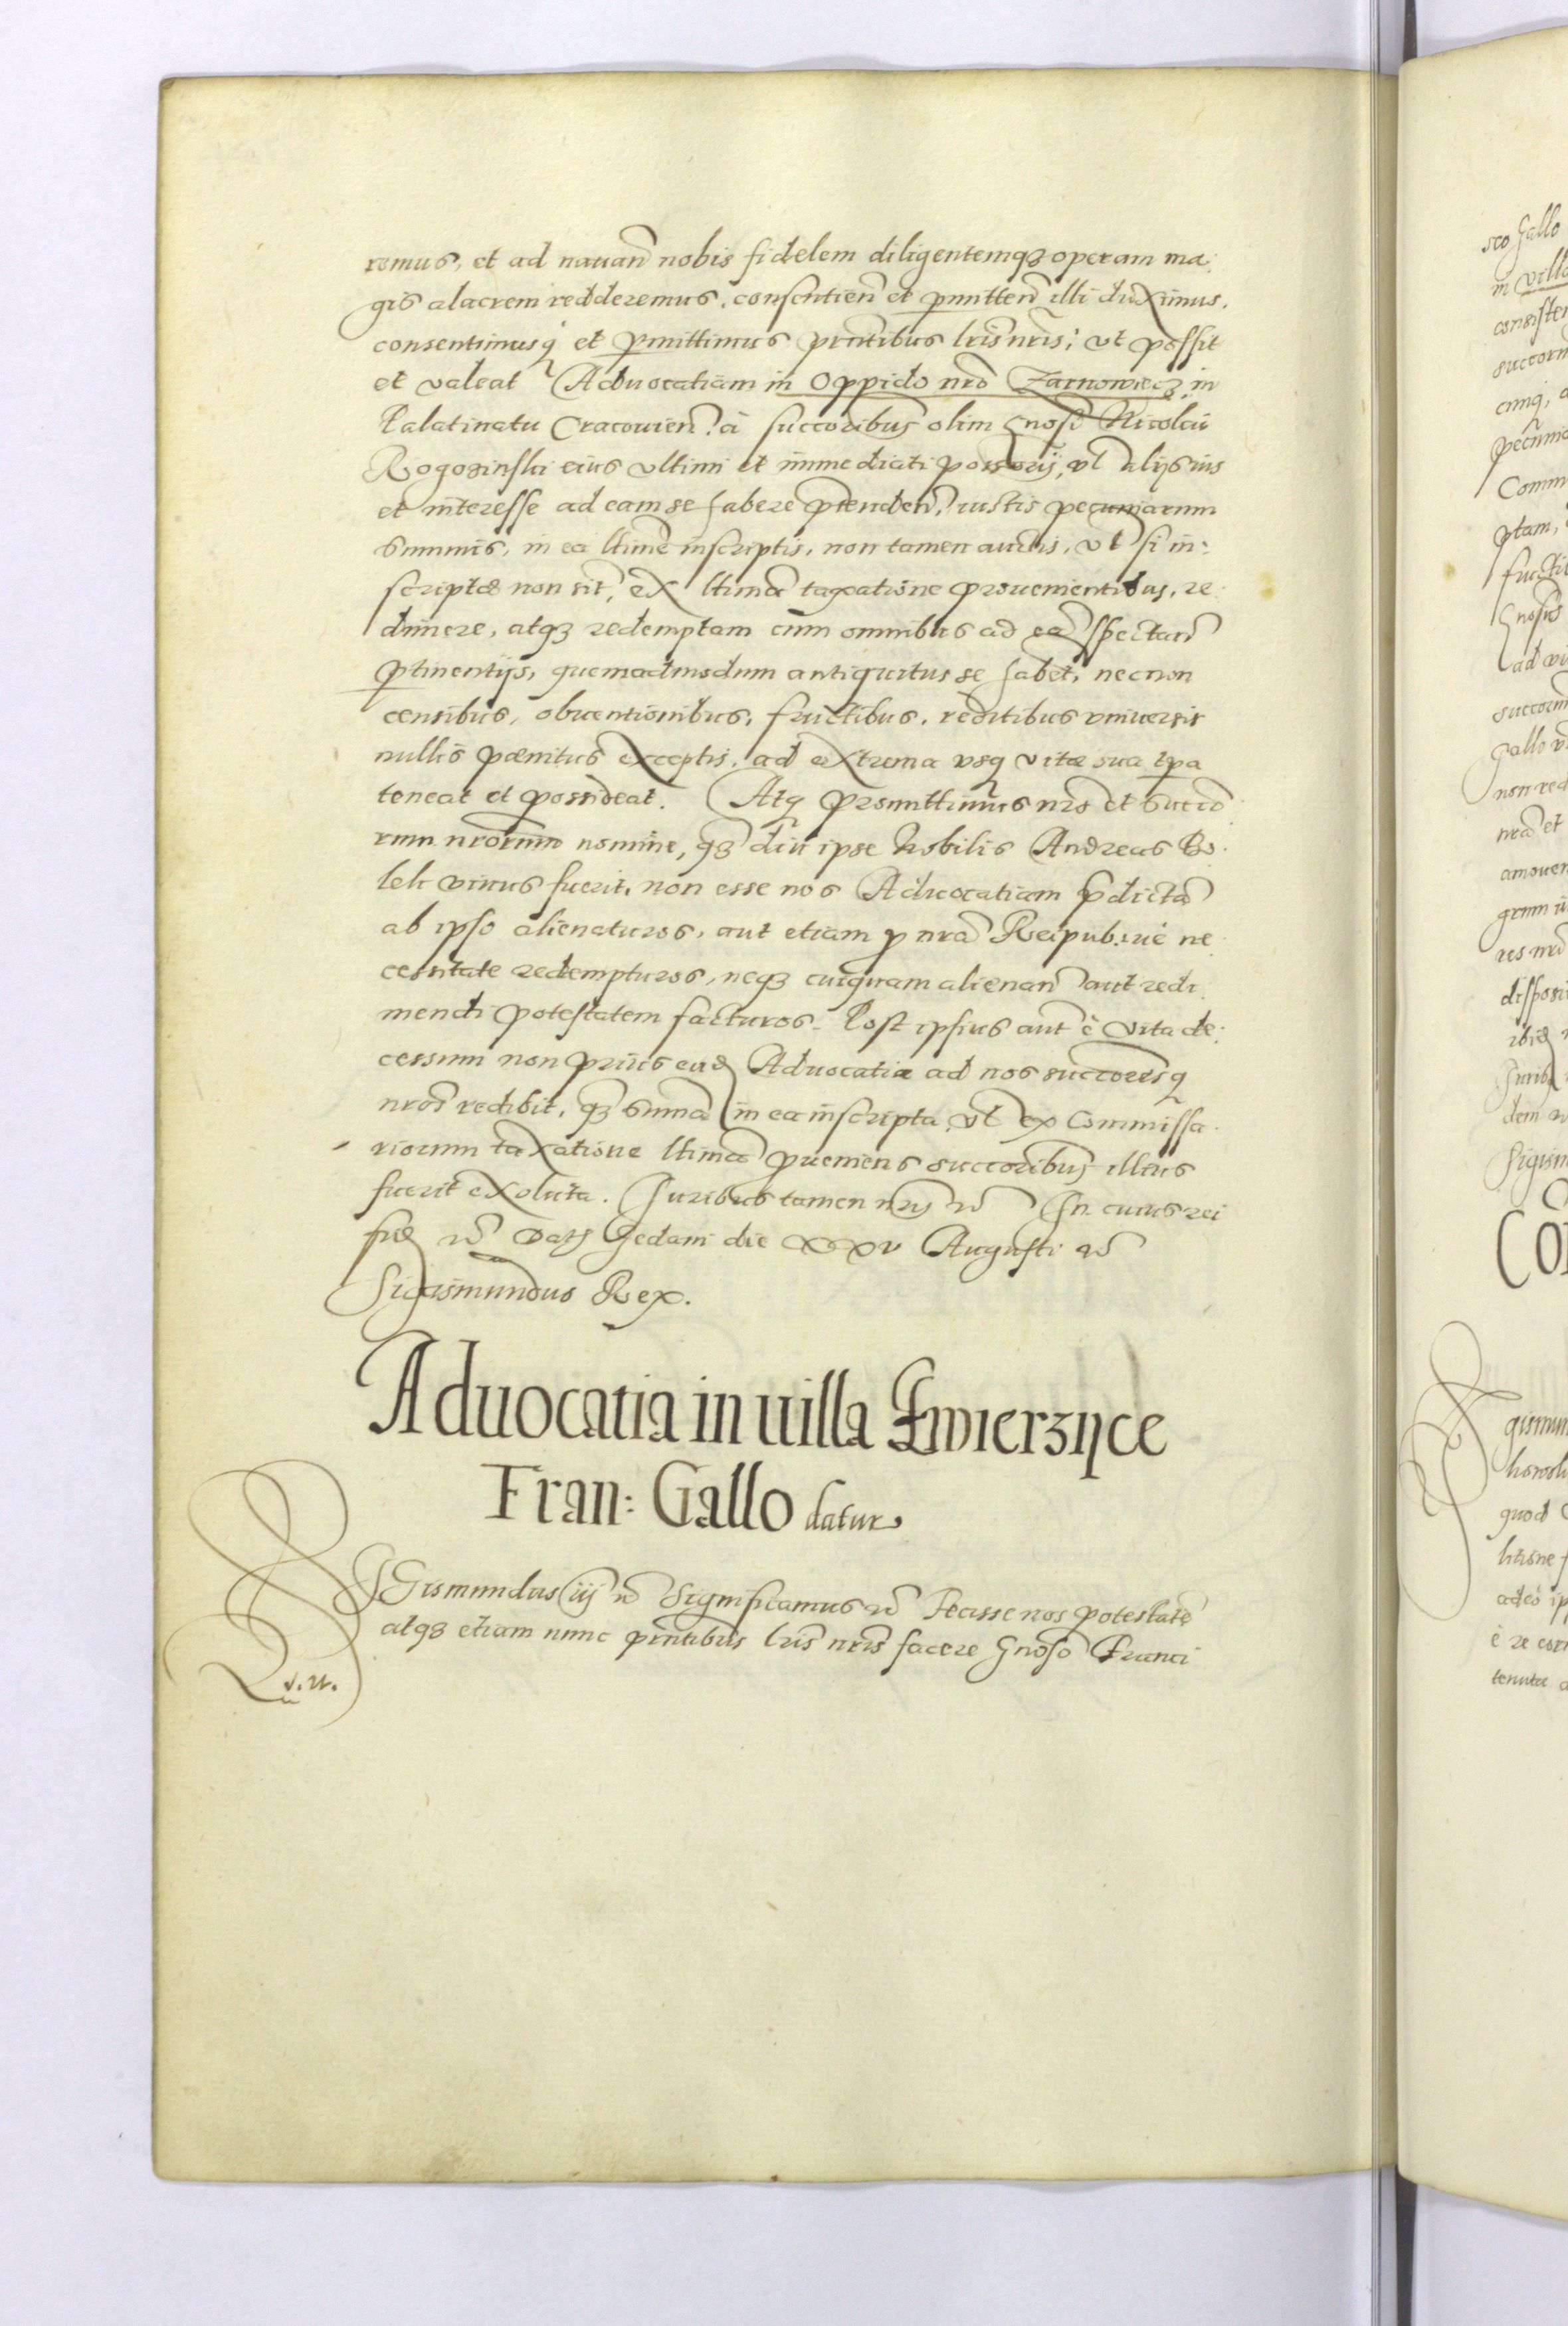 remus, et ad nauan̄ nobis fidelem diligentemqꝫ operam ma
gis alacrem redderemus. consentien̄ et ꝑmitten̄ illi duximus.
consentimusq́ et ꝑmittimus pn̄tibus lris nris; vt possit
et valeat Aduocatiam in Oppido nrō Zarnowiecz, in
Palatinatu Cracouien̄. à succoribus olim Gnosi Nicolai
Rogozinski eius vltimi et immediati possorij, vl alijs ius
et interesse ad eam se habere p̄tenden̄, iustis pecuniarum
summis, in ea ltime inscriptis, non tamen auctis, vl si in:
scriptæ non sit, ex ltima taxatione prouenientibus, re
dimere, atqꝫ redemptam cum omnibus ad eā spectan̄
ꝑtinentijs, quemadmodum antiquitus se habet, necnon
censibus, obuentionibus, fructibus, reditibus vniuersis
nullis pœnitus exceptis, ad extrema vsq vitæ sua tꝑa
teneat et possideat. Atq promittimus nrō et succo
rum nrorum nomine, qꝫ diu ipse Nobilis Andreas Bo
lek viuus fuerit, non esse nos Aduocatiam p̄dictā
ab ipso alienaturos, aut etiam ꝓ nrā Reipub. ne
cessitate redempturos, neqꝫ cuiquam alienan̄ aut redi
mendi potestatem facturos. Post ipsius aut̄ è vita de:
cessum non prius ead Aduocatia ad nos succoresq
nros redibit, qꝫ summa in ea inscripta, vl ex Commissa
riorum taxatione ltima ꝓueniens succoribus illius
fuerit exoluta. Juribus tamen nris etc̄ In cuius rei
fid etc̄ Dat Gedani die XXV Augusti etc̄
Sigismundus Rex.
Aduocatia in uilla Zwierzyce
Fran: Gallo datur
SIGismundus iij etc̄ Significamus etc̄ Fecisse nos potestatē
atqꝫ etiam nunc pn̄tibus lris nris facere Gnoso Franci